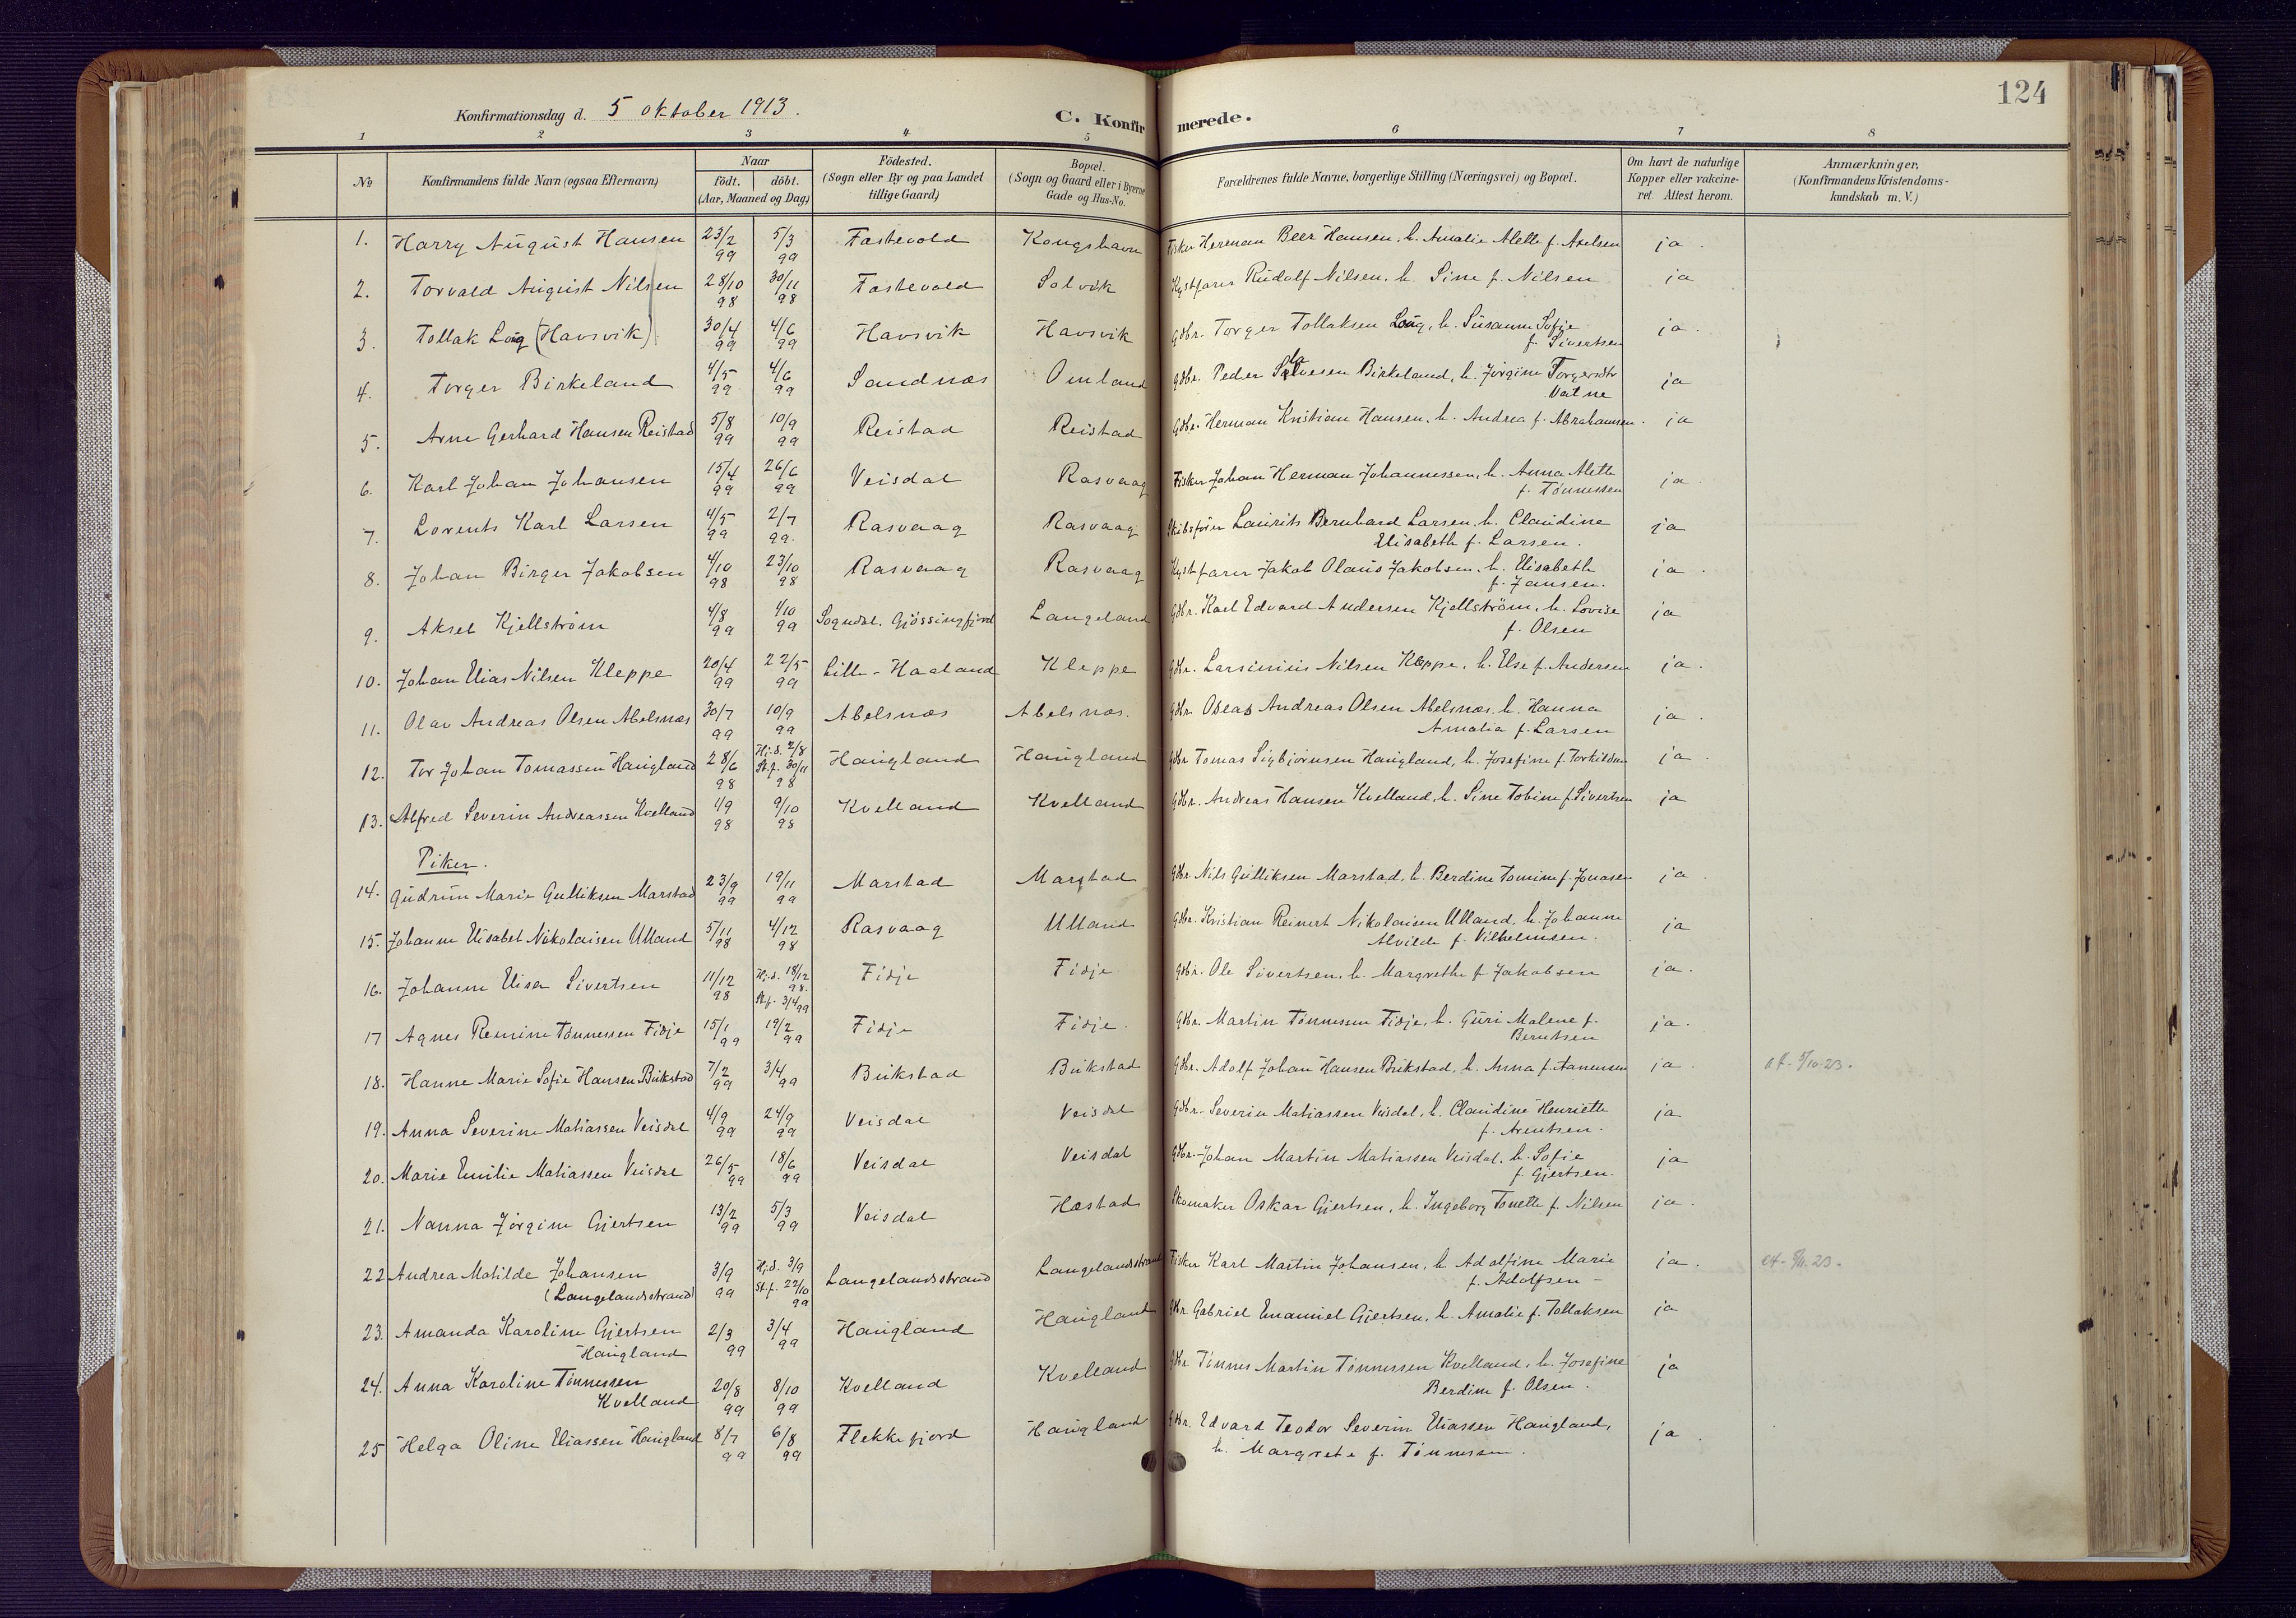 124
Konfirmationsdag d. 5 oktober 1913.
C. Konfirmerede.
1 2 3 4 5 6 7 8
No
Konfirmandens fulde Navn (ogsaa Efternavn)
Naar
født. døbt.
(Aar, Maaned og Dag)
Fødested.
(Sogn eller By og paa Landet
tillige Gaard)
Bopæl.
(Sogn og Gaard eller i Byerne
Gade og Hus-No.
Forældrenes fulde Navne, borgerlige Stilling (Næringsvei) og Bopæl.
Om havt de naturlige
Kopper eller vakcine-
ret. Attest herom.
Anmærkninger.
(Konfirmandens Kristendoms-
kundskab m. V.)
1. Harry August Hansen 23/2 99 5/3 99 Fastevold Kongshavn Fisker Herman Beer Hansen, h. Amalie Alette f. Axelsen ja.
2. Torvald August Nilsen 28/10 98 30/11 98 Fastevold Solvik Kystfarer Rudolf Nilsen, h. Sine f. Nilsen ja
3. Tollak Log (Havsvik) 30/4 99 4/6 99 Havsvik Havsvik Gdbr. Torger Tollaksen Log, h. Susanne Sofie
f. Sivertsen ja.
4. Torger Birkeland 4/5 99 4/6 99 Sandnæs Omland Gdbr. Peder Salvesen Birkeland, h. Jørgine Torgersdtr
Vatne ja
5. Arne Gerhard Hansen Reistad 5/8 99 10/9 99 Reistad Reistad Gdbr. Herman Kristian Hansen, h. Andrea f. Abrahamsen. ja
6. Karl Johan Johansen 15/4 99 26/6 99 Veisdal Rasvaag Fisker Johan Herman Johannessen, h. Anna Alette
f. Tønnessen ja.
7. Lorents Karl Larsen 4/5 99 2/7 99. Rasvaag Rasvaag Skibsfører Laurits Bernhard Larsen, h. Claudine
Elisabeth f. Larsen. ja
8. Johan Birger Jakobsen 4/10 98 23/10 98 Rasvaag Rasvaag Kystfarer Jakob Olaus Jakobsen, h. Elisabeth
f. Jansen. ja.
9. Aksel Kjellstrøm 4/8 99 1/10 99 Sogndal. Gjøssingfjord Langeland Gdbr. Karl Edvard Andersen Kjellström, h. Lovise
f. Olsen ja
10. Johan Elias Nilsen Kleppe 20/4 99 22/5 99 Lille-Haaland Kleppe Gdbr. Larsinius Nilsen Kleppe, h. Else f. Andersen ja.
11. Olav Andreas Olsen Abelsnæs 30/7 99 10/9 99 Abelsnæs Abelsnæs. Gdbr. Oleas Andreas Olsen Abelsnæs, h. Hanna
Amalia f. Larsen ja.
12. Tor Johan Tomassen Haugland 28/6 98 Hj.d. 2/8 St.f. 30/11 98 Haugland Haugland Gdbr. Tomas Sigbjørnsen Haugland, h. Josefine f. Torkildsen ja.
13. Alfred Severin Andreassen Kvelland 1/9 98 9/10 98 Kvelland Kvelland Gdbr. Andreas Hansen Kvelland, h. Sine Tobine f. Sivertsen ja
Piker.
14. Gudrun Marie Gulliksen Marstad 23/9 99 19/11 99 Marstad Marstad Gdbr. Nils Gulliksen Marstad, h. Berdine Tomine f. Jonasen ja.
15. Johanne Elisabet Nikolaisen Ulland 5/11 98 4/12 98 Rasvaag Ulland Gdbr. Kristian Reinert Nikolaisen Ulland, h. Johanne
Alvilde f. Vilhelmsen. ja
16. Johanne Elisa Sivertsen 11/12 98 Hj.d. 18/12 98. St.f. 3/4 99 Fidje Fidje Gdbr. Ole Sivertsen, h. Margrethe f. Jakobsen ja.
17 Agnes Remine Tønnessen Fidje 15/1 99 19/2 99 Fidje Fidje. Gdbr. Martin Tønnessen Fidje, h. Guri Malene f.
Berntsen ja.
18. Hanne Marie Sofie Hansen Bukstad 7/2 99 3/4 99 Bukstad Bukstad Gdbr. Adolf Johan Hansen Bukstad, h. Anna f. Aanensen ja.
19. Anna Severine Matiassen Veisdal 4/9 99 24/9 99 Veisdal Veisdal Gdbr. Severin Matiassen Veisdal, h. Claudine Henriette
f. Arentsen. ja
20. Marie Emilie Matiassen Veisdal 26/5 99 18/6 99 Veisdal Veisdal Gdbr. Johan Martin Matiassen Veisdal, h. Sofie
f. Gjertsen. ja
21. Nanna Jørgine Gjertsen 13/2 99 5/3 99 Veisdal Hæstad Skomaker Oskar Gjertsen, h. Ingeborg Tonette f. Nilsen ja.
22 Andrea Matilde Johansen
(Langelandsstrand) 3/9 99 Hj.d. 3/9 St.f. 22/10 99 Langelandsstrand Langelandsstrand Fisker Karl Martin Johansen, h. Adolfine Marie
f. Adolfsen - ja.
23. Amanda Karoline Gjertsen
Haugland 2/3 99 3/4 99 Haugland Haugland Gdbr. Gabriel Emanuel Gjertsen, h. Amalie f. Tollaksen ja
24. Anna Karoline Tønnessen
Kvelland 20/8 99 8/10 99 Kvelland Kvelland Gdbr. Tønnes Martin Tønnessen Kvelland, h. Josefine
Berdine f. Olsen. ja
25 Helga Oline Eliassen Haugland 8/7 99 6/8 99 Flekkefjord Haugland Gdbr. Edvard Teodor Severin Eliassen Haugland,
h. Margrete f. Tønnessen. ja.